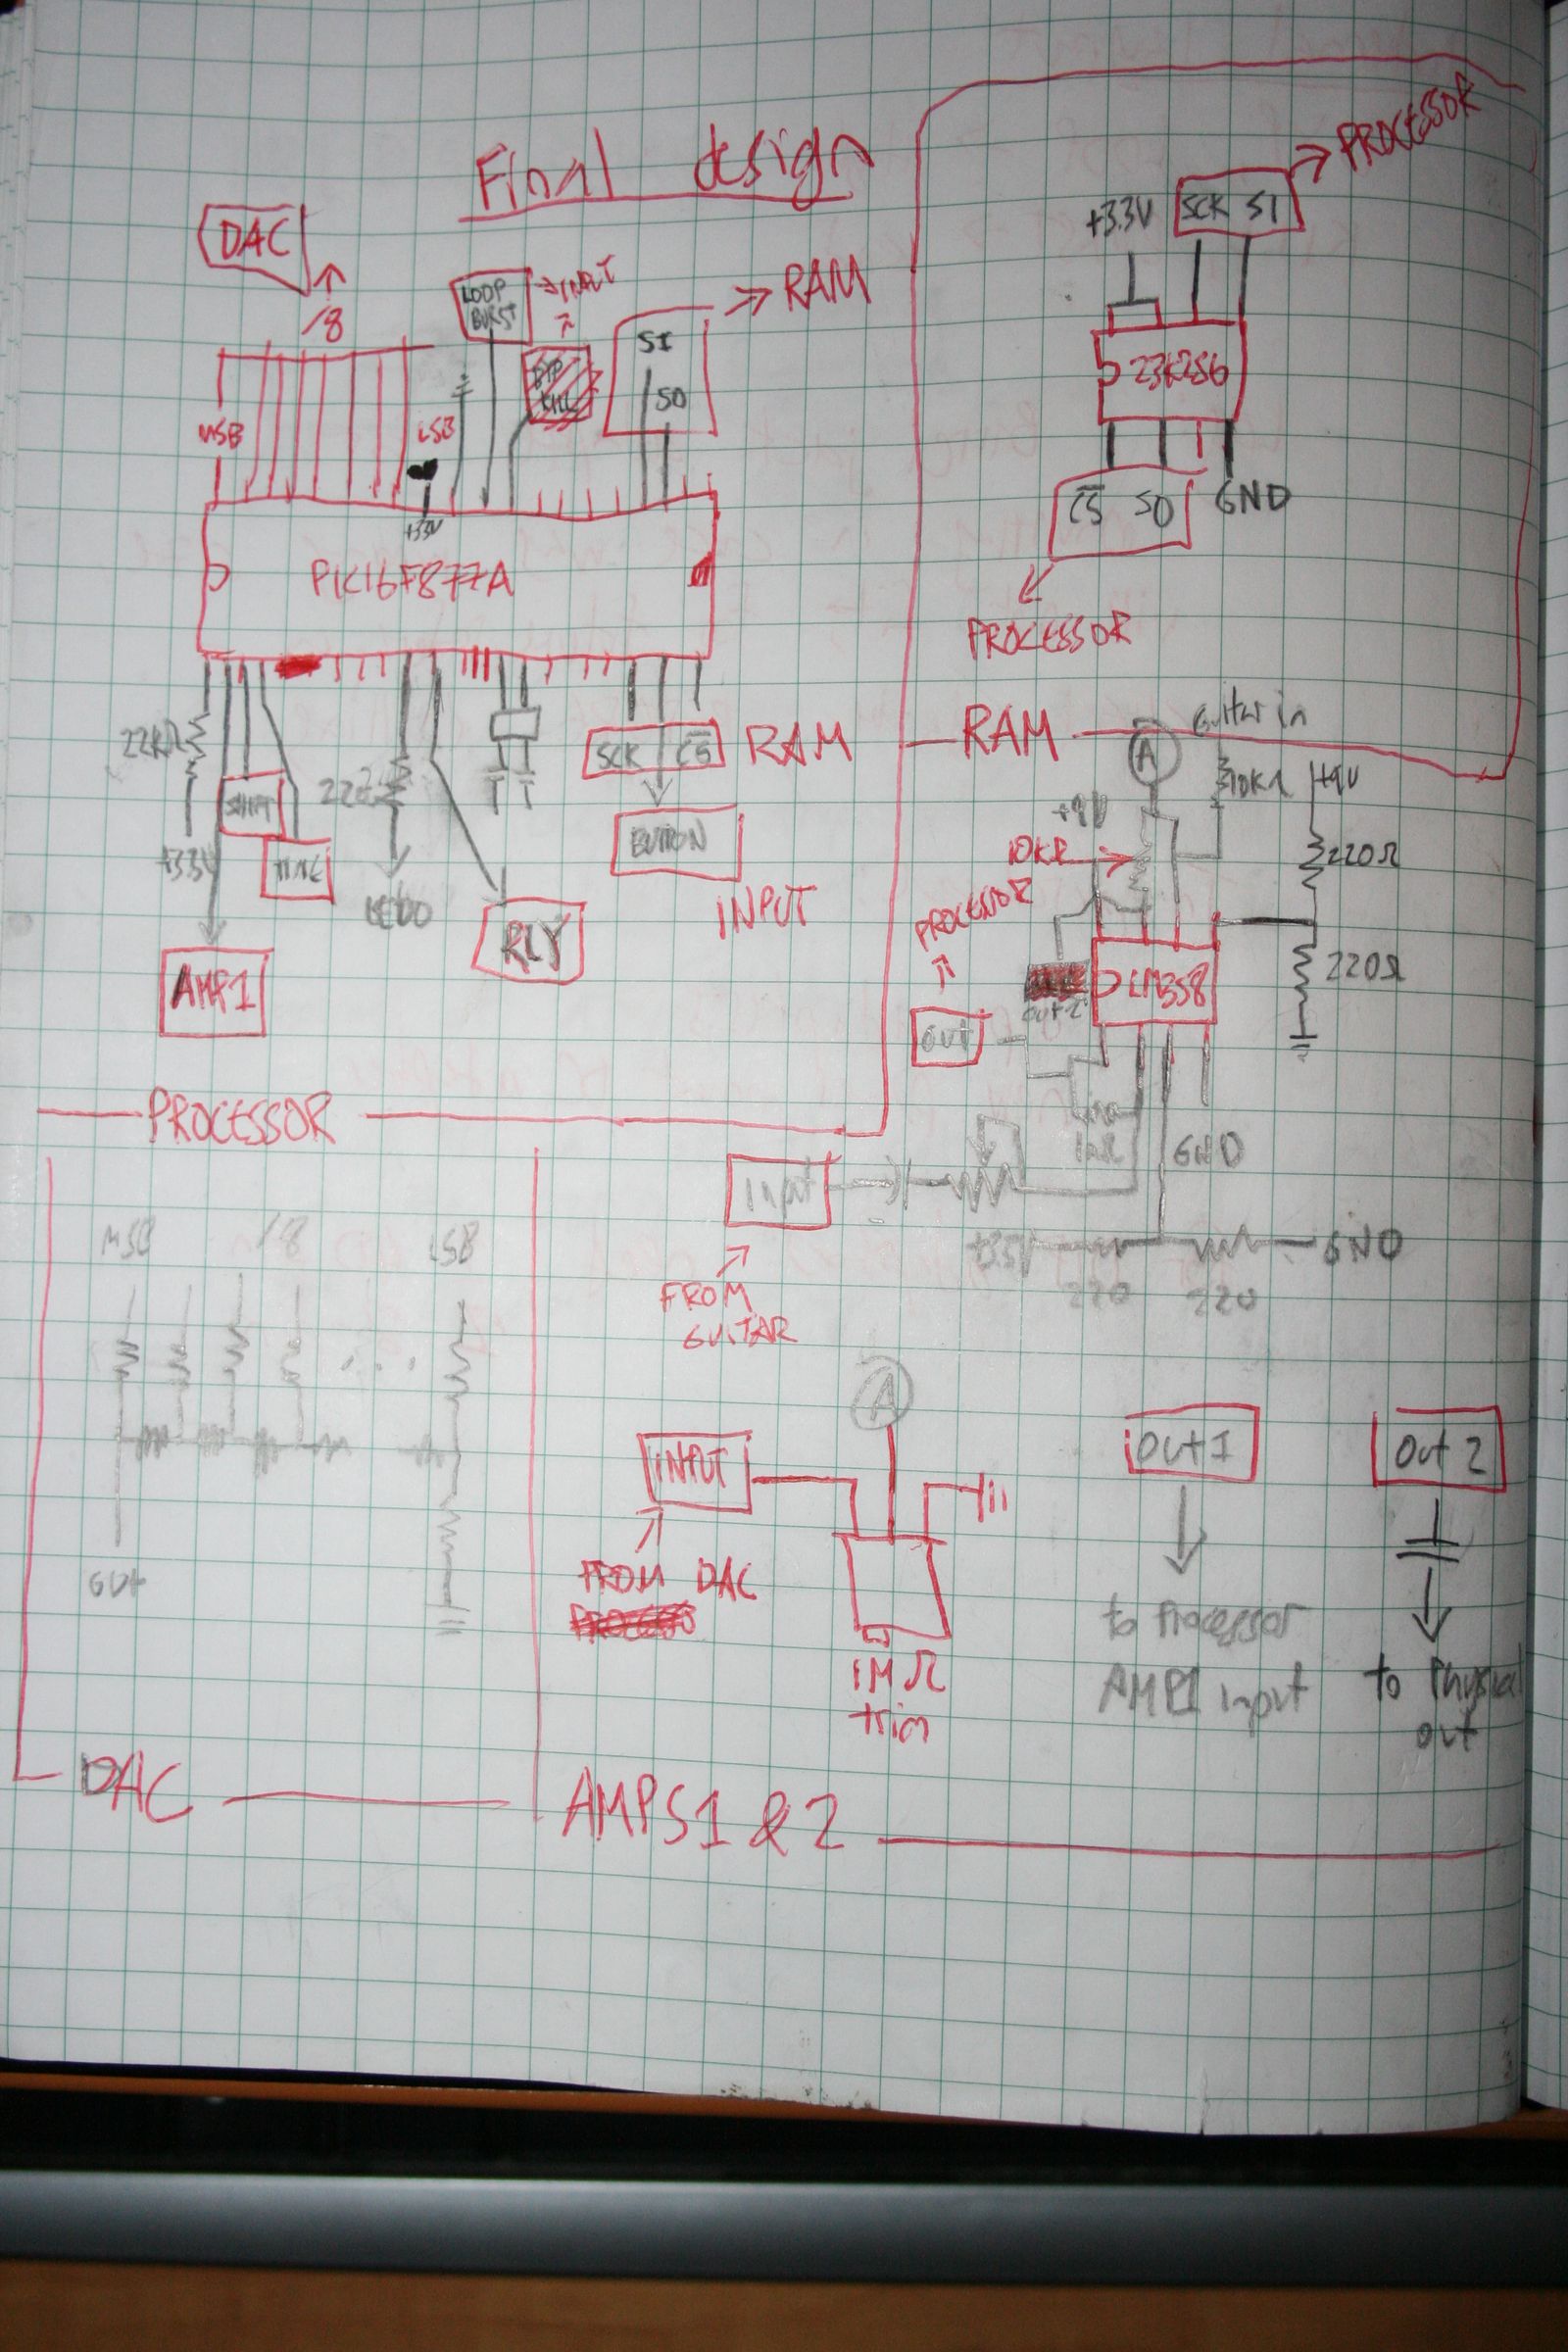 Final design
DAC
/8
LOOP
BURST
INPUT
RAM
SI
SO
MSB
LSB
+3.3V
PIC16F877A
22KΩ
+3.3V
220
SCK
CS
RAM
BUTTON
INPUT
RLY
AMP1
PROCESSOR
PROCESSOR
+3.3V
SCK SI
23K256
CS SO
GND
PROCESSOR
RAM
A
Guitar in
10KΩ
+9V
+9V
10KΩ
220Ω
PROCESSOR
LM358
220Ω
out 2
out
1MΩ
GND
Input
GND
220
220
FROM
GUITAR
MSB
/8
LSB
out
DAC
A
INPUT
FROM DAC
1MΩ
trim
Out 1
to Processor
AMP1 input
Out 2
to Physical
out
AMPS 1 & 2